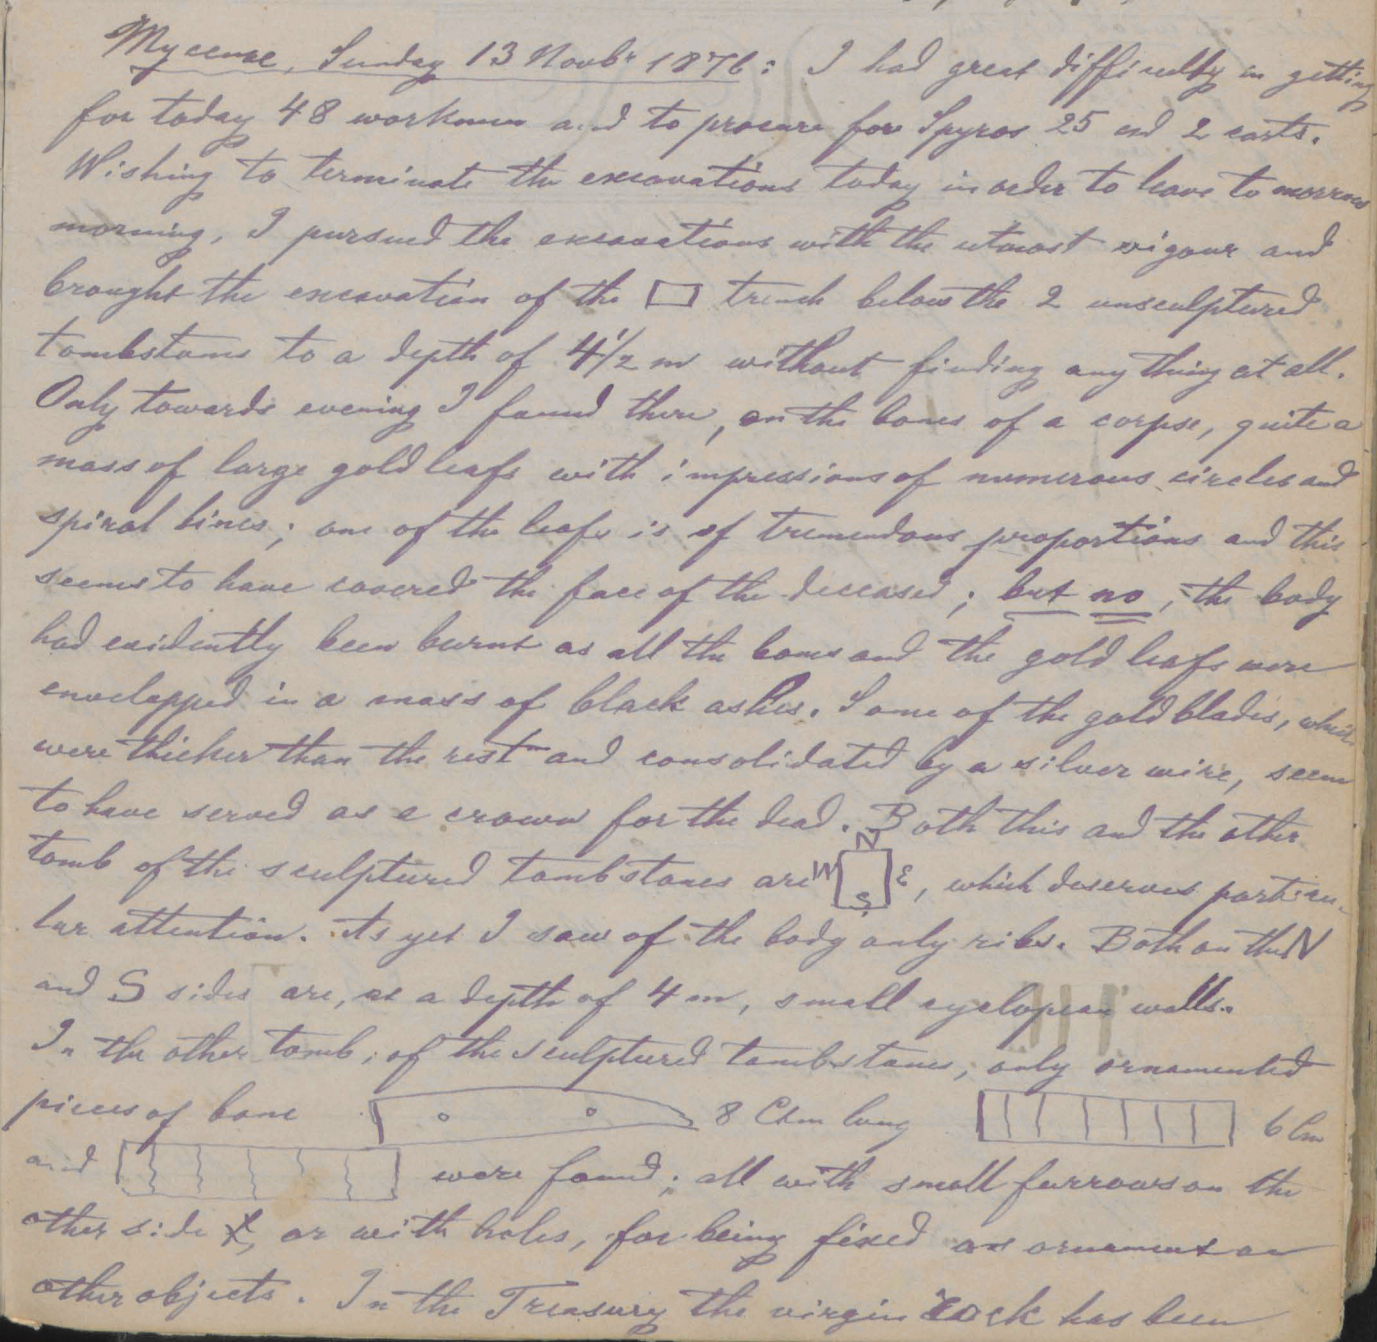 Mycenae, Sunday 13 Novbr 1876: I had great difficulty in getting
for today 48 workmen and to procure for Spyros 25 and 2 carts.
Wishing to terminate the excavations today in order to leave to morrow
morning, I pursued the excavations with the utmost vigour and
brought the excavation of the trench below the 2 unsculptured
tombstones to a depth of 4 1/2 m without finding any thing at all.
Only towards evening I found there, on the bones of a corpse, quite a
mass of large gold leafs with impressions of numerous circles and
spiral lines; one of the leafs is of tremendous proportions and this
seems to have covered the face of the deceased; but no, the body
had evidently been burnt as all the bones and the gold leafs were
envelopped in a mass of black ashes. Some of the gold blades, which
were thicker than the rest and consolidated by a silver wire, seem
to have served as a crown for the dead. Both this and the other
tomb of the sculptured tombstones are W N S E, which deserves particu-
lar attention. As yet I saw of the body only ribs. Both on the N
and S sides are, at a depth of 4 m, small cyclopean walls.
In the other tomb, of the sculptured tombstones, only ornamented
pieces of bone 8 Ctm long 6 Cm
and were found; all with small furrows on the
other side, or with holes, for being fixed as ornament on
other objects. In the Treasury the virgin rock has been